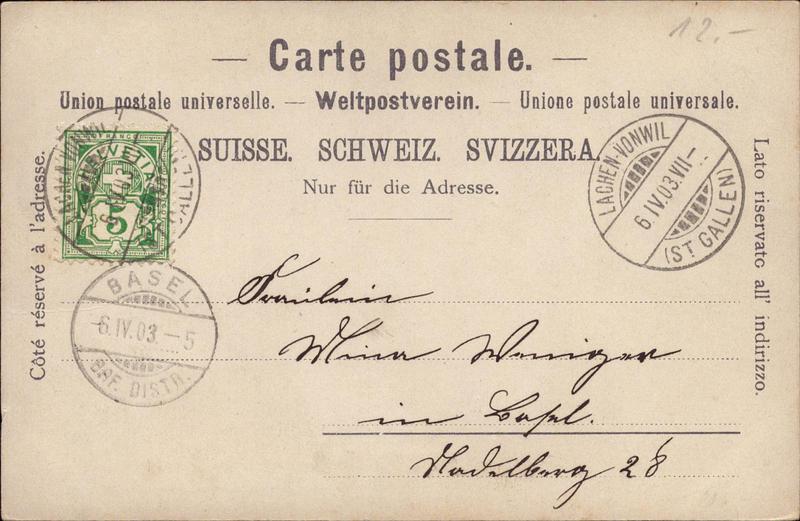 12.-
— Carte postale. —
Union postale universelle. — Weltpostverein. — Unione postale universale.
SUISSE. SCHWEIZ. SVIZZERA.
Nur für die Adresse.
Côté réservé à l'adresse.
Lato riservato all' indirizzo.
FRANCO
HELVETIA
5
LACHEN-VONWIL
6.IV.03.VII-
(ST GALLEN)
BASEL
-6.IV.03.-5
BRF. DISTR.
Fräulein
Mina Weniger
in Basel.
Nadelberg 28